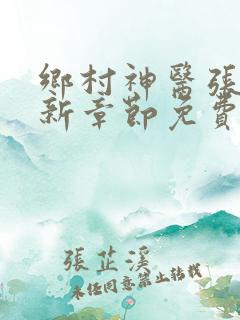 鄉村神醫張
新章節免費
張芷溪
未經同意禁止轉載